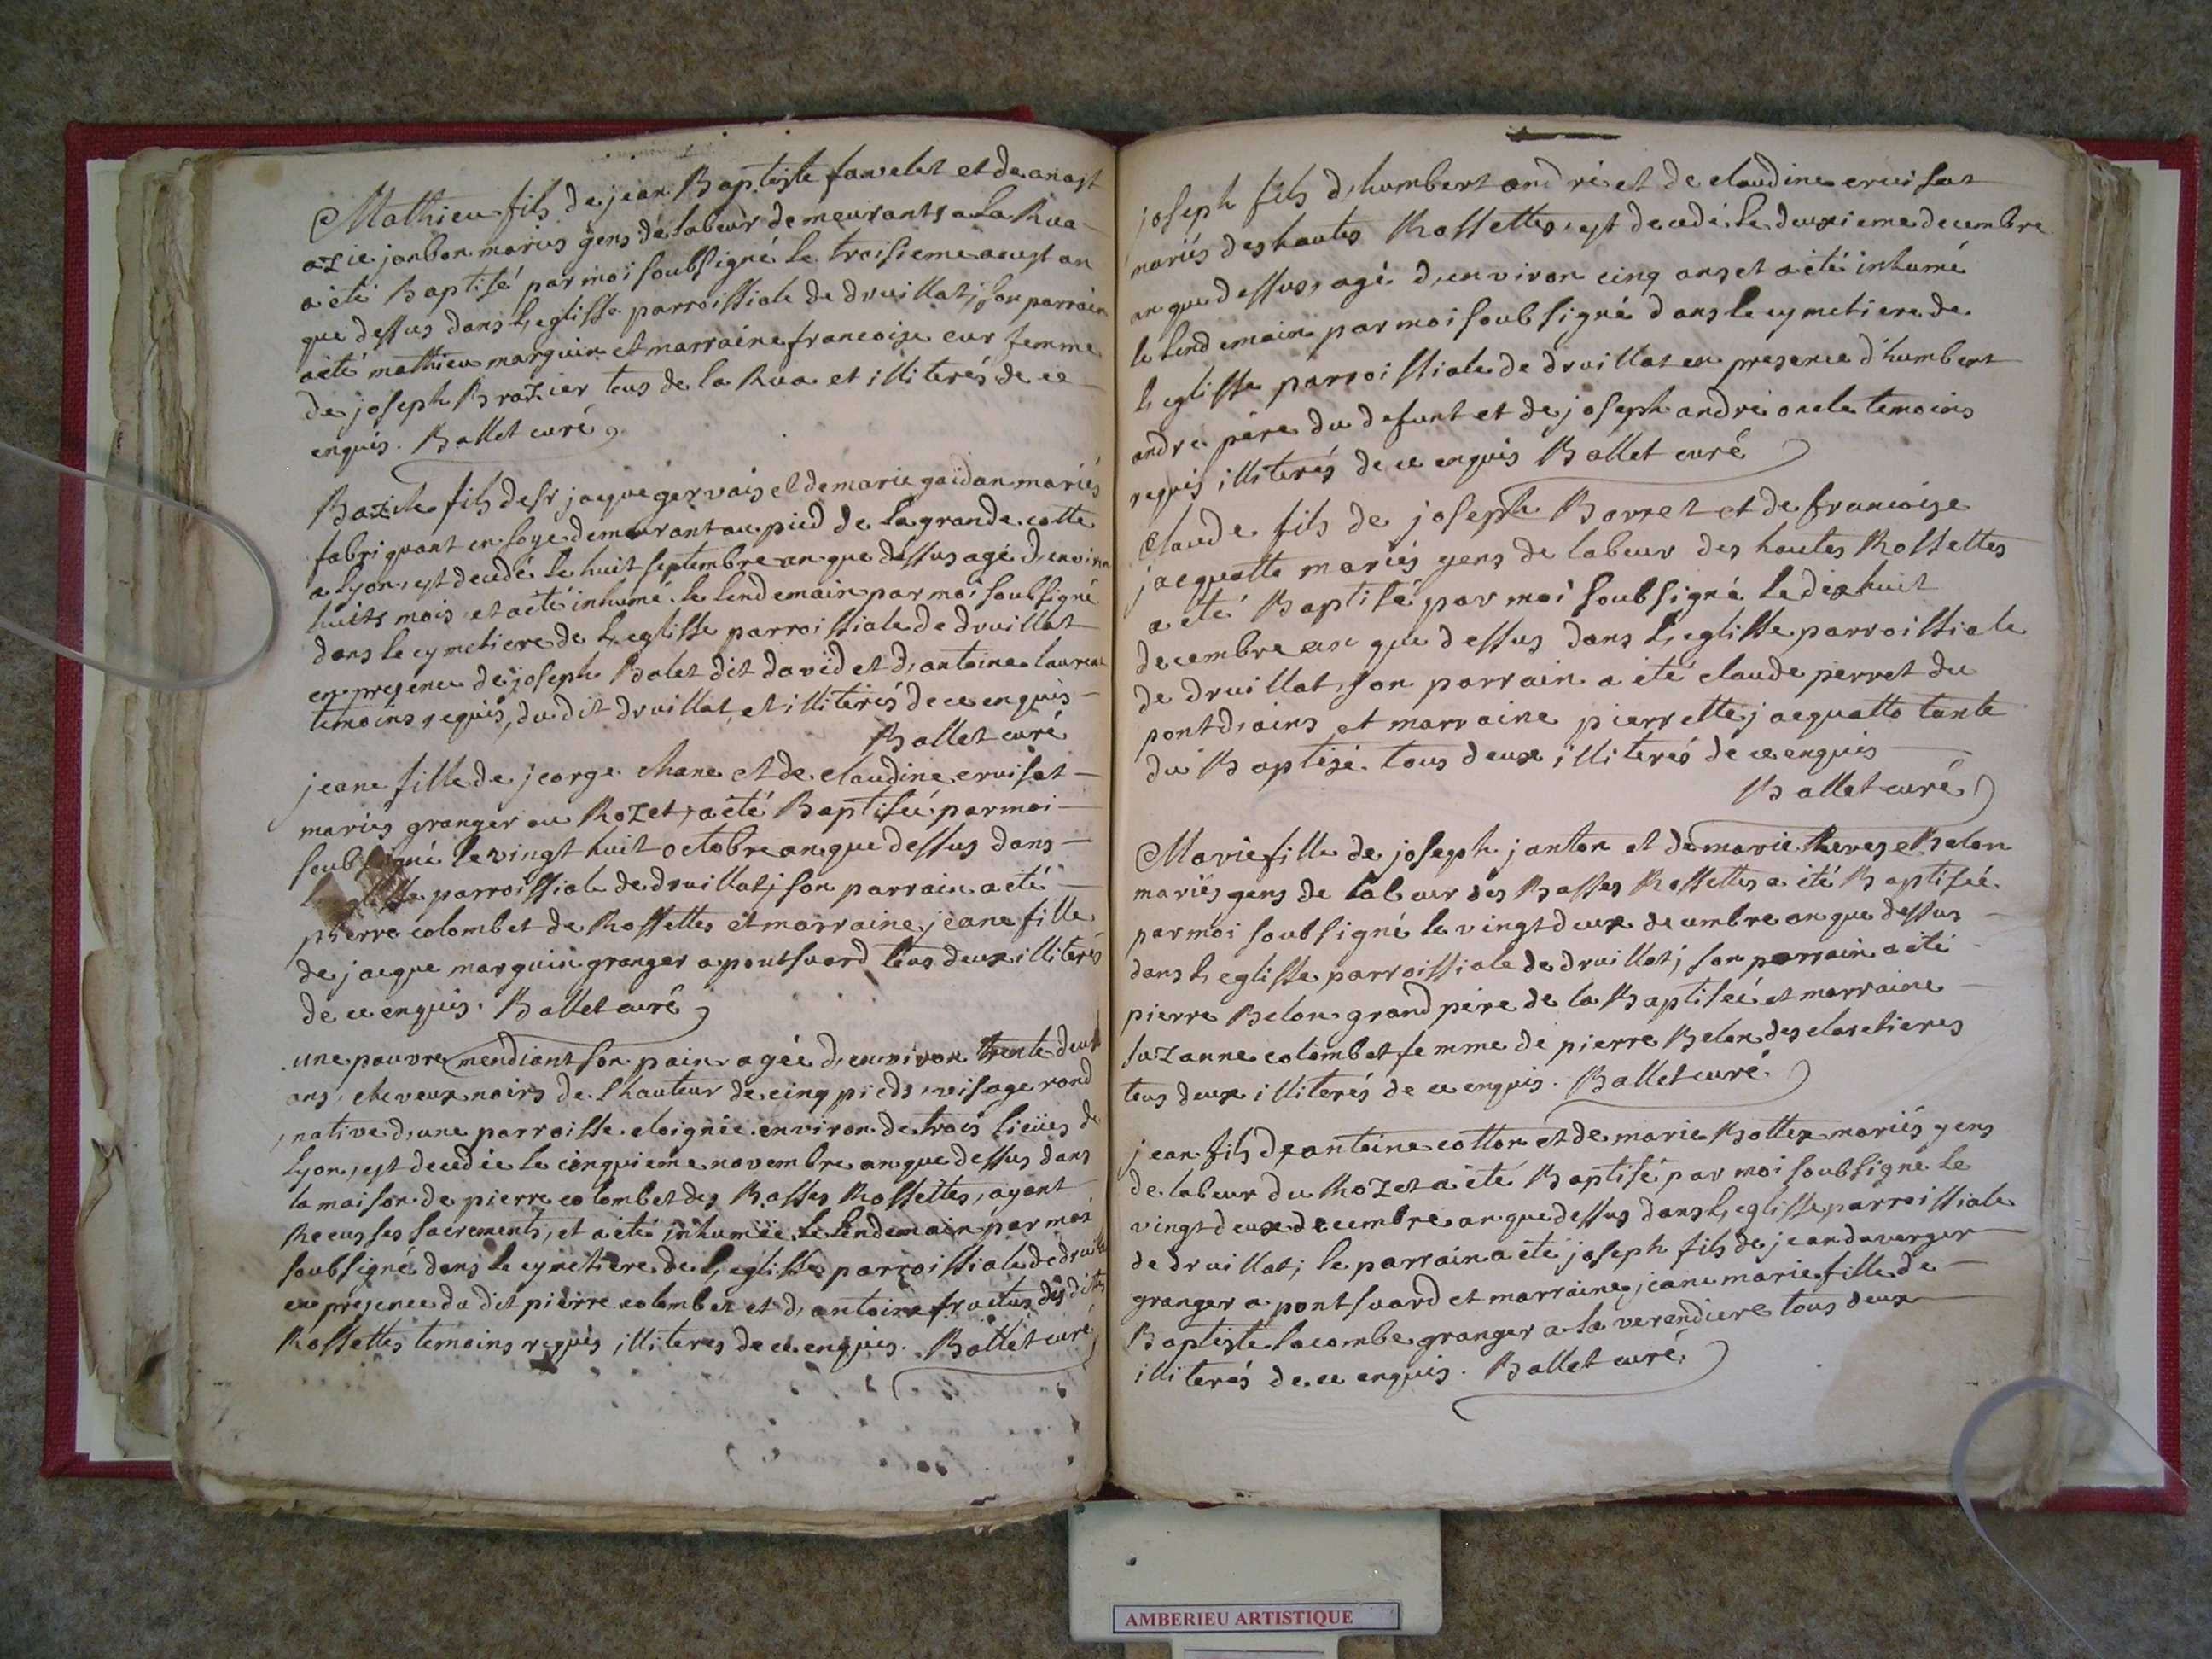 Mathieu fils de jean Baptiste fauvelet et de anast
azie janbon mariés gens de labeur demeurants a la Rua
a été Baptisé par moi soubsigné le troisieme aoust an
que dessus dans l,eglisse parroissiale de druillat; son parrain
a été mathieu marguin et marraine francoise cur femme
de joseph Brazier tous de la Rua et illiterés de ce
enquis. Ballet curé
Bazile fils de sr jacque gervais et de marie gaidan mariés
fabriquant en soye demeurant au pied de la grande cotte
a Lyon, est decedé le huit septembre an que dessus agé d,environ
huits mois, et a été inhumé le lendemain par moi soubsigné
dans le cymetiere de l,eglisse parroissiale de druillat
en presence de joseph Balet dit david et d,antoine laurent
temoins requis, du dit druillat, et illiterés de ce enquis
Ballet curé
jeane fille de jeorge chane et de claudine cruisat
mariés granger au Rozet, a été Baptiseé par moi
soubsigné le vingt huit octobre an que dessus dans
l,eglisse parroissiale de druillat; son parrain a été
pierre colombet de Rossettes et marraine jeane fille
de jacque marguin granger a pontsuard tous deux illiterés
de ce enquis. Ballet curé
une pauvre mendiant son pain agée d,environ trente deux
ans, cheveux noirs de l hauteur de cinq pieds, visage rond
, native d,une parroisse eloignée environ de trois lieües de
Lyon, est decedée le cinquieme novembre an que dessus dans
la maison de pierre colombet des Basses Rossettes, ayant
Recus ses sacrements, et a été inhumée le lendemain par moi
soubsigné dans le cymetiere de l,eglisse parroissiale de druillat
en presence du dit pierre colombet et d,antoine fructus des dittes
Rossettes temoins requis illiteres de ce enquis. Ballet curé
joseph fils d,humbert andré et de claudine cruisat
mariés des hautes Rossettes, est decedé le deuxieme decembre
an que dessus, agé d,environ cinq ans et a été inhumé
le lendemain par moi soubsigné dans le cymetiere de
l,eglisse parroissiale de druillat en presence d'humbert
andre père du defunt et de joseph andré oncle temoins
requis illiterés de ce enquis Ballet curé
Claude fils de joseph Borret et de francoise
jacquatte mariés gens de labeur des hautes Rossettes
a été Baptisé par moi soubsigné le dixhuit
decembre an que dessus dans l,eglisse parroissiale
de druillat, son parrain a été claude perret du
pont d,ains et marraine pierrette jacquatte tante
du Baptisé tous deux illiterés de ce enquis
Ballet curé
Marie fille de joseph janton et de marie therese Belon
mariés gens de labeur des Basses Rossettes a été Baptiseé
par moi soubsigné le vingt deux decembre an que dessus
dans l,eglisse parroissiale de druillat; son parrain a été
pierre Belon grand père de la Baptiseé et marraine
suzanne colombet femme de pierre Belon des claretieres
tous deux illiterés de ce enquis. Ballet curé
jean fils de antoine cotton et de marie Bottex mariés gens
de labeur du Rozet a été Baptisé par moi soubsigné le
vingt deux decembre an que dessus dans l,eglisse parroissiale
de druillat; le parrain a été joseph fils de jean duverger
granger a pontsuard et marraine jeane marie fille de
Baptiste lacombe granger a la verendiere tous deux
illiterés de ce enquis. Ballet curé
AMBERIEU ARTISTIQUE